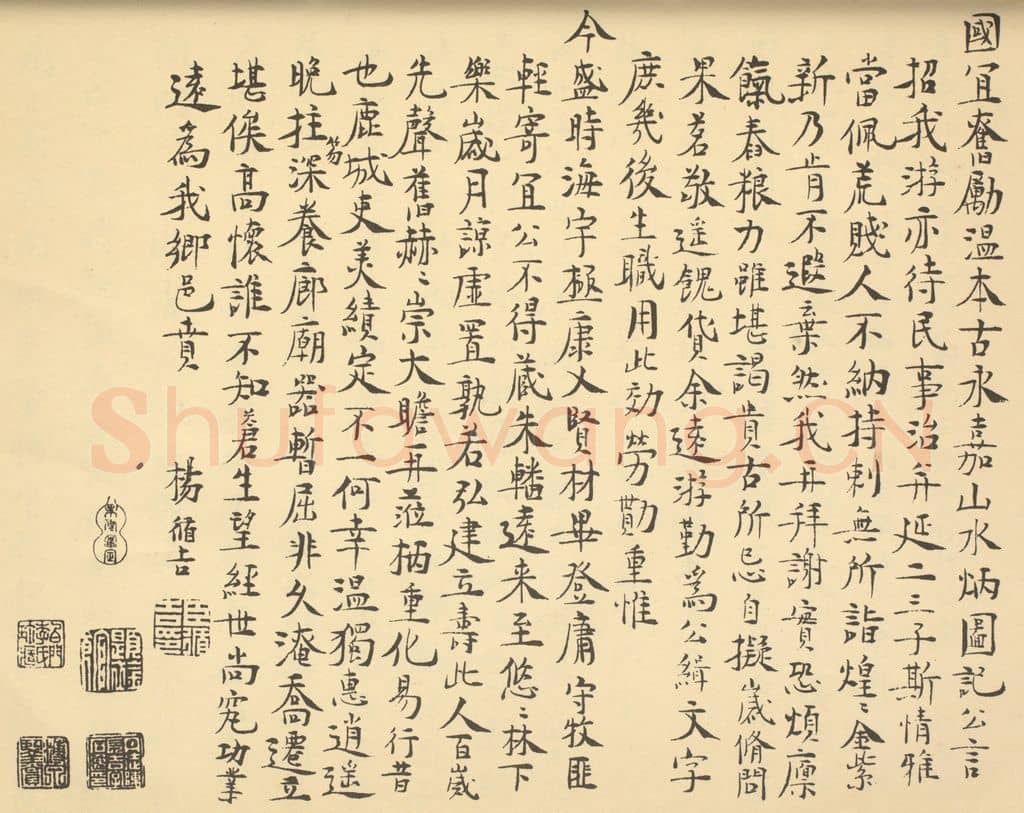 國宜奮勵溫本古永嘉山水炳圖記公言
招我游亦待民事治幷延二三子斯情雅
當佩荒賤人不納持刺無所詣煌〻金紫
新乃肯不遐棄然我再拜謝實恐煩廩
餼舂粮力雖堪謁貴古所忌自擬歲脩問
果茗敬遥餽貸余遠游勤為公緝文字
庶幾後生職用此効勞勩重惟
今盛時海宇極康乂賢材畢登庸守牧匪
輕寄宜公不得蔵朱轓遠来至悠〻林下
樂歲月諒虛置孰若弘建立壽此人百歲
先聲舊赫〻崇大瞻再蒞柄重化易行昔
也鹿城吏美績定不一何幸溫獨惠逍遥
晚拄笏深養廊廟器暫屈非久淹喬遷立
堪俟高懷誰不知蒼生望經世尚究功業
遠為我鄉邑賁 楊循吉
Shufawang.CN